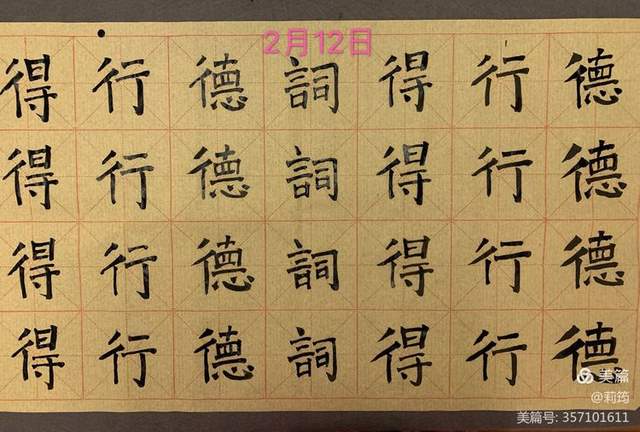 2月12日
得行德詞得行德
得行德詞得行德
得行德詞得行德
得行德詞得行德
美篇
@莉筠
美篇号: 357101611